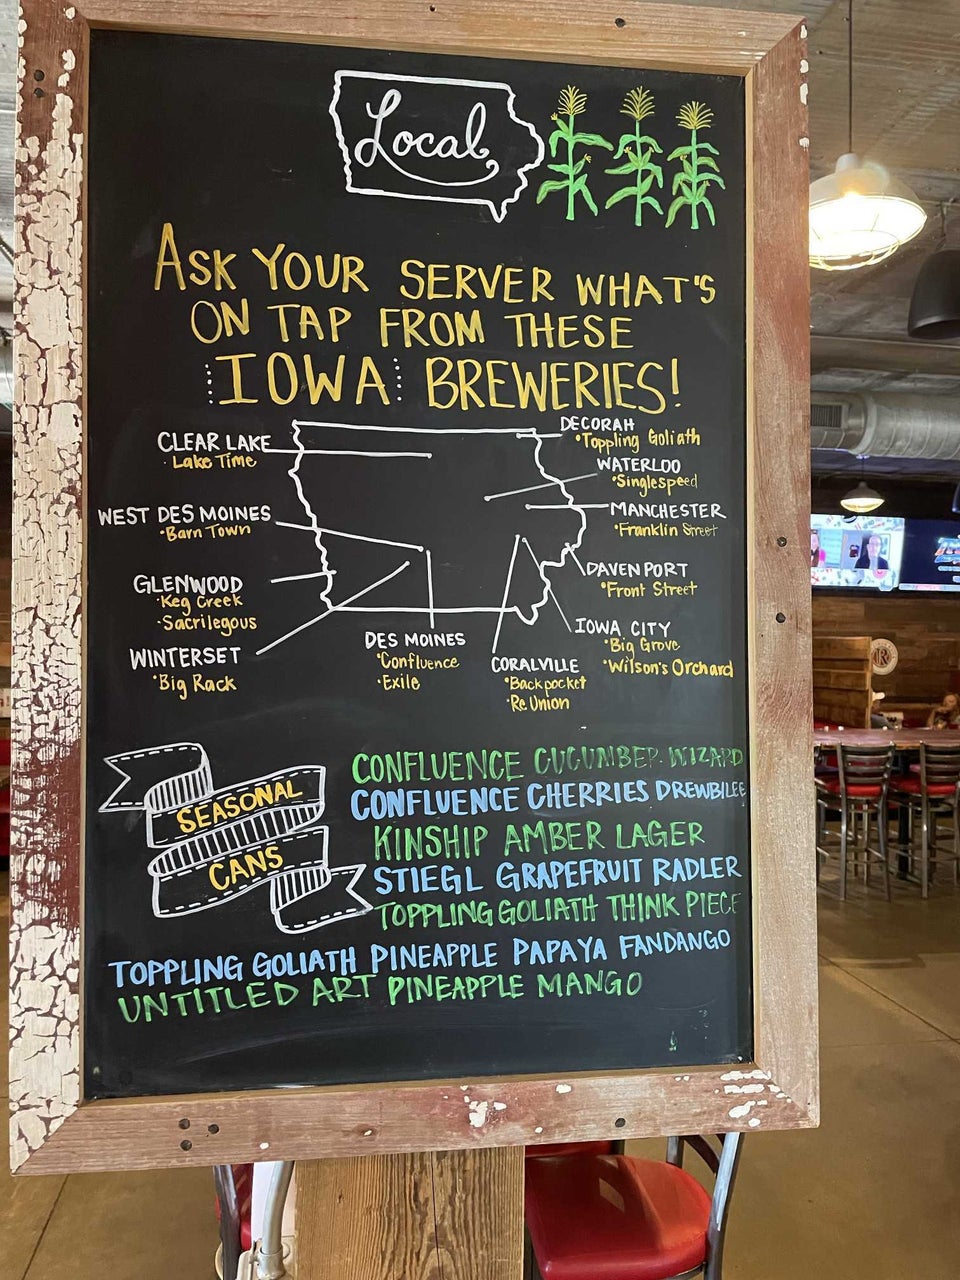 Local
ASK YOUR SERVER WHAT'S
ON TAP FROM THESE
IOWA BREWERIES!
CLEAR LAKE
· Lake Time
WEST DES MOINES
· Barn Town
GLENWOOD
· Keg Creek
· Sacrilegous
WINTERSET
· Big Rack
DES MOINES
· Confluence
· Exile
CORALVILLE
· Backpocket
· ReUnion
DECORAH
· Toppling Goliath
WATERLOO
· Singlespeed
MANCHESTER
· Franklin Street
DAVENPORT
· Front Street
IOWA CITY
· Big Grove
· Wilson's Orchard
SEASONAL
CANS
CONFLUENCE CUCUMBER WIZARD
CONFLUENCE CHERRIES DREWBILEE
KINSHIP AMBER LAGER
STIEGL GRAPEFRUIT RADLER
TOPPLING GOLIATH THINK PIECE
TOPPLING GOLIATH PINEAPPLE PAPAYA FANDANGO
UNTITLED ART PINEAPPLE MANGO